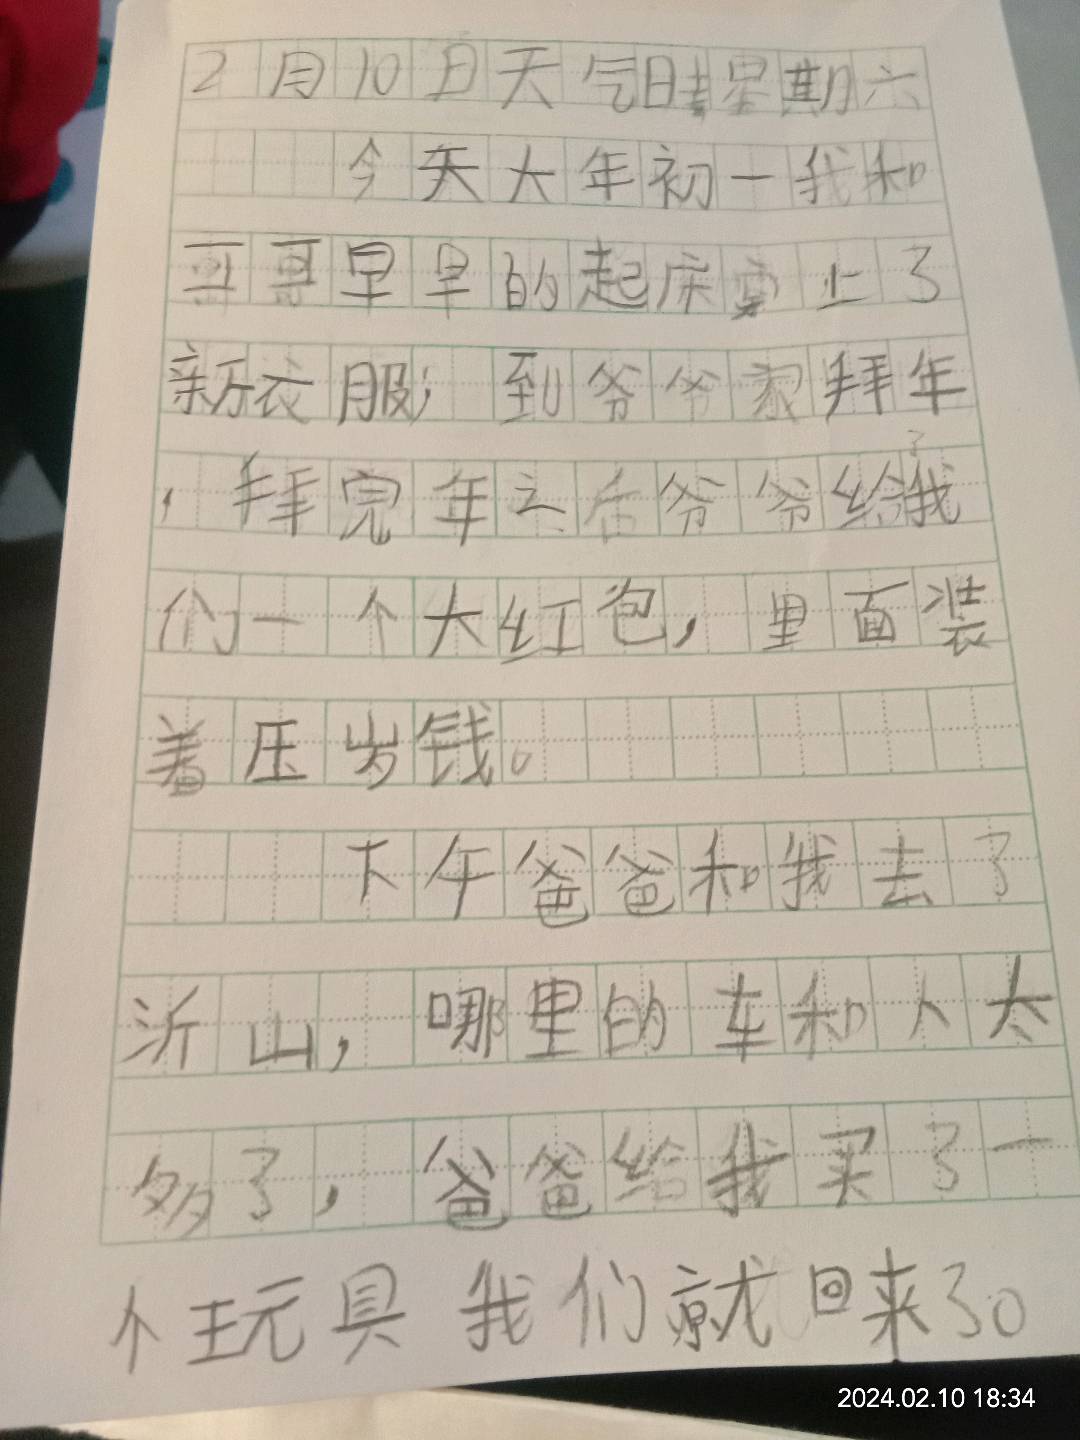 2月10日天气晴星期六
今天大年初一我和
哥哥早早的起床穿上了
新衣服，到爷爷家拜年
，拜完年之后爷爷给了我
们一个大红包，里面装
着压岁钱。
下午爸爸和我去了
沂山，哪里的车和人太
多了，爸爸给我买了一
个玩具 我们就回来了。
2024.02.10 18:34